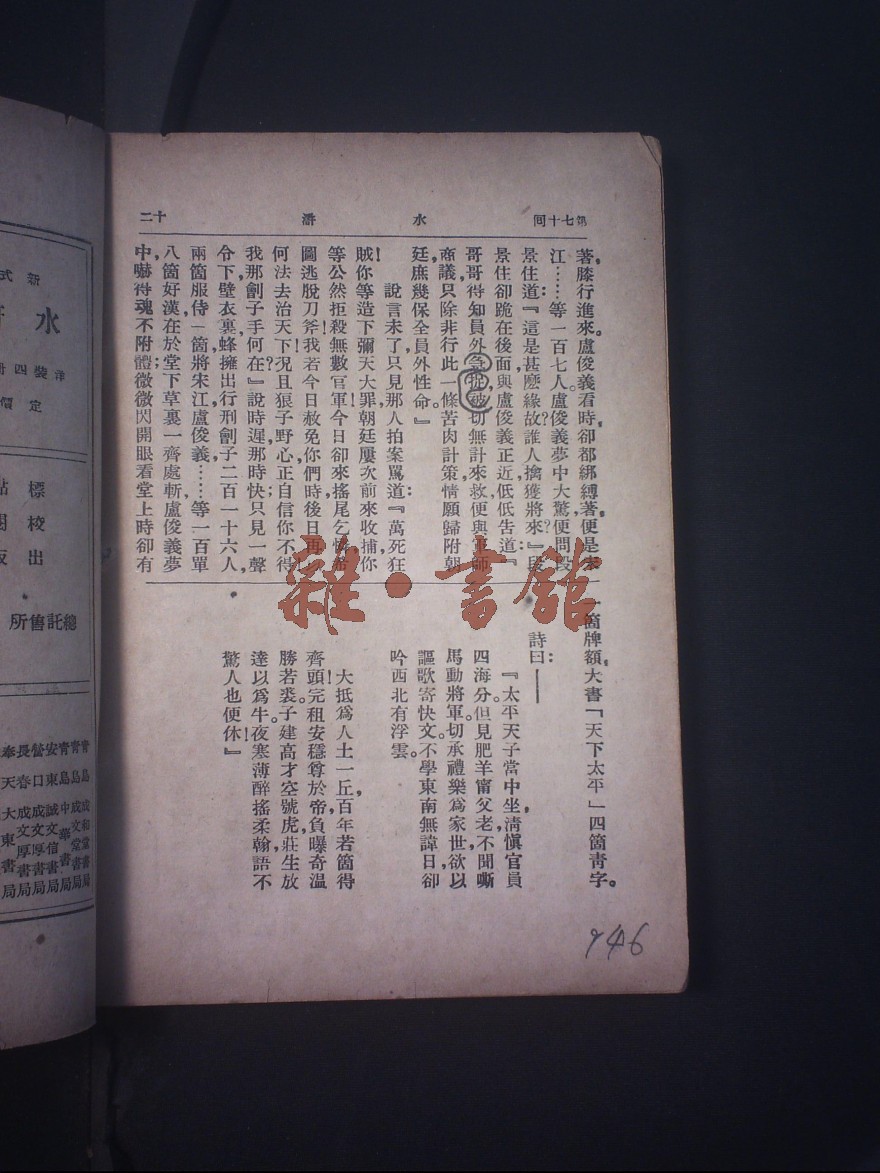 第七十回
水滸
十二
著膝行進來。盧俊義看時,卻都綁縛著,便是宋
江……等一百七人。盧俊義夢中大驚,便問段
景住道:『這是甚麼緣故?誰人擒獲將來?』段
景住卻跪在後面,與盧俊義正近,低低告道:『
哥哥得知員外被捉,急切無計來救,便與軍師
商議,只除非行此一條苦肉計策,情願歸附朝
廷,庶幾保全員外性命。』
說言未了,只見那人拍案罵道:『萬死狂
賊!你等造下彌天大罪,朝廷屢次前來收捕,你
等公然拒殺無數官軍!今日卻來搖尾乞憐,希
圖逃脫刀斧!我若今日赦免你們時,後日再以
何法去治天下?況且狼子野心,正自信你不得!
我那劊子手何在?』說時遲,那時快,只見一聲
令下,壁衣裏蜂擁出行刑劊子二百一十六人,
兩箇服侍一箇,將宋江盧俊義……等一百單
八箇好漢在於堂下草裏一齊處斬。盧俊義夢
中嚇得魂不附體;微微閃開眼看堂上時,卻有
一箇牌額,大書「天下太平」四箇青字。
詩曰:——
『太平天子當中坐,清慎官員
四海分。但見肥羊甯父老,不聞嘶
馬動將軍。切承禮樂爲家世,欲以
謳歌寄快文。不學東南無諱日,卻
吟西北有浮雲。
大抵爲人土一丘,百年若箇得
齊頭!完租安穩尊於帝,負曝奇溫
勝若裘。子建高才空號虎,莊生放
達以爲牛。夜寒薄醉搖柔翰,語不
驚人也便休!』
946
新式
水
洋裝四冊
定價
標點
校
出
總託售所
青島成和堂書局
青島中華書局
安東誠文信書局
營口成文厚書局
長春成文厚書局
奉天大東書局
雜·書館